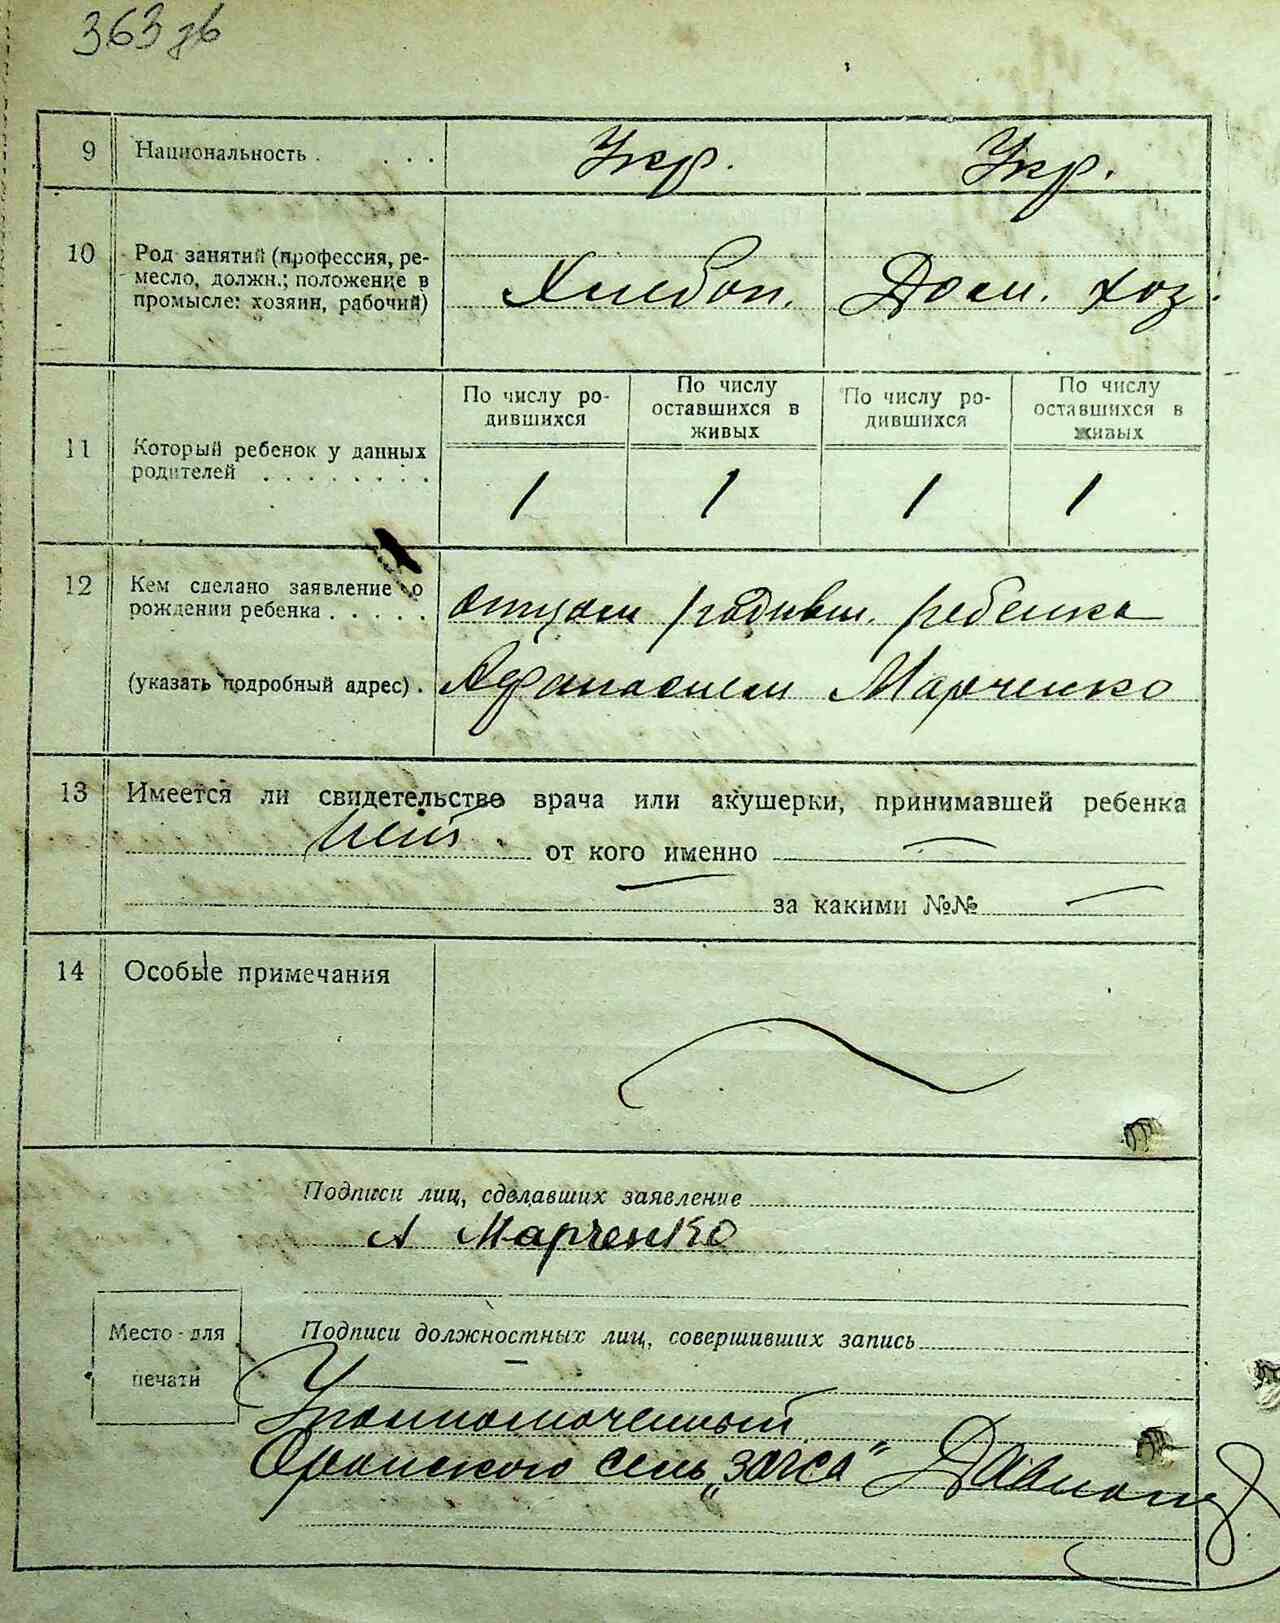 363 зв
9 Национальность . . . . Укр. Укр.
10 Род занятий (профессия, ре-
месло, должн.; положение в
промысле: хозяин, рабочий) Хлебоп. Дом. хоз.
По числу ро-
дившихся
По числу
оставшихся в
живых
По числу ро-
дившихся
По числу
оставшихся в
живых
11 Который ребенок у данных
родителей . . . . . . . . 1 1 1 1
12 Кем сделано заявление о
рождении ребенка . . . . . отцом родивш. ребенка
(указать подробный адрес) . Афанасием Марченко
13 Имеется ли свидетельство врача или акушерки, принимавшей ребенка
нет. от кого именно —
— за какими №№ —
14 Особые примечания
Подписи лиц, сделавших заявление
А Марченко
Место для
печати
Подписи должностных лиц, совершивших запись
Уполномоченный
сель „загса“